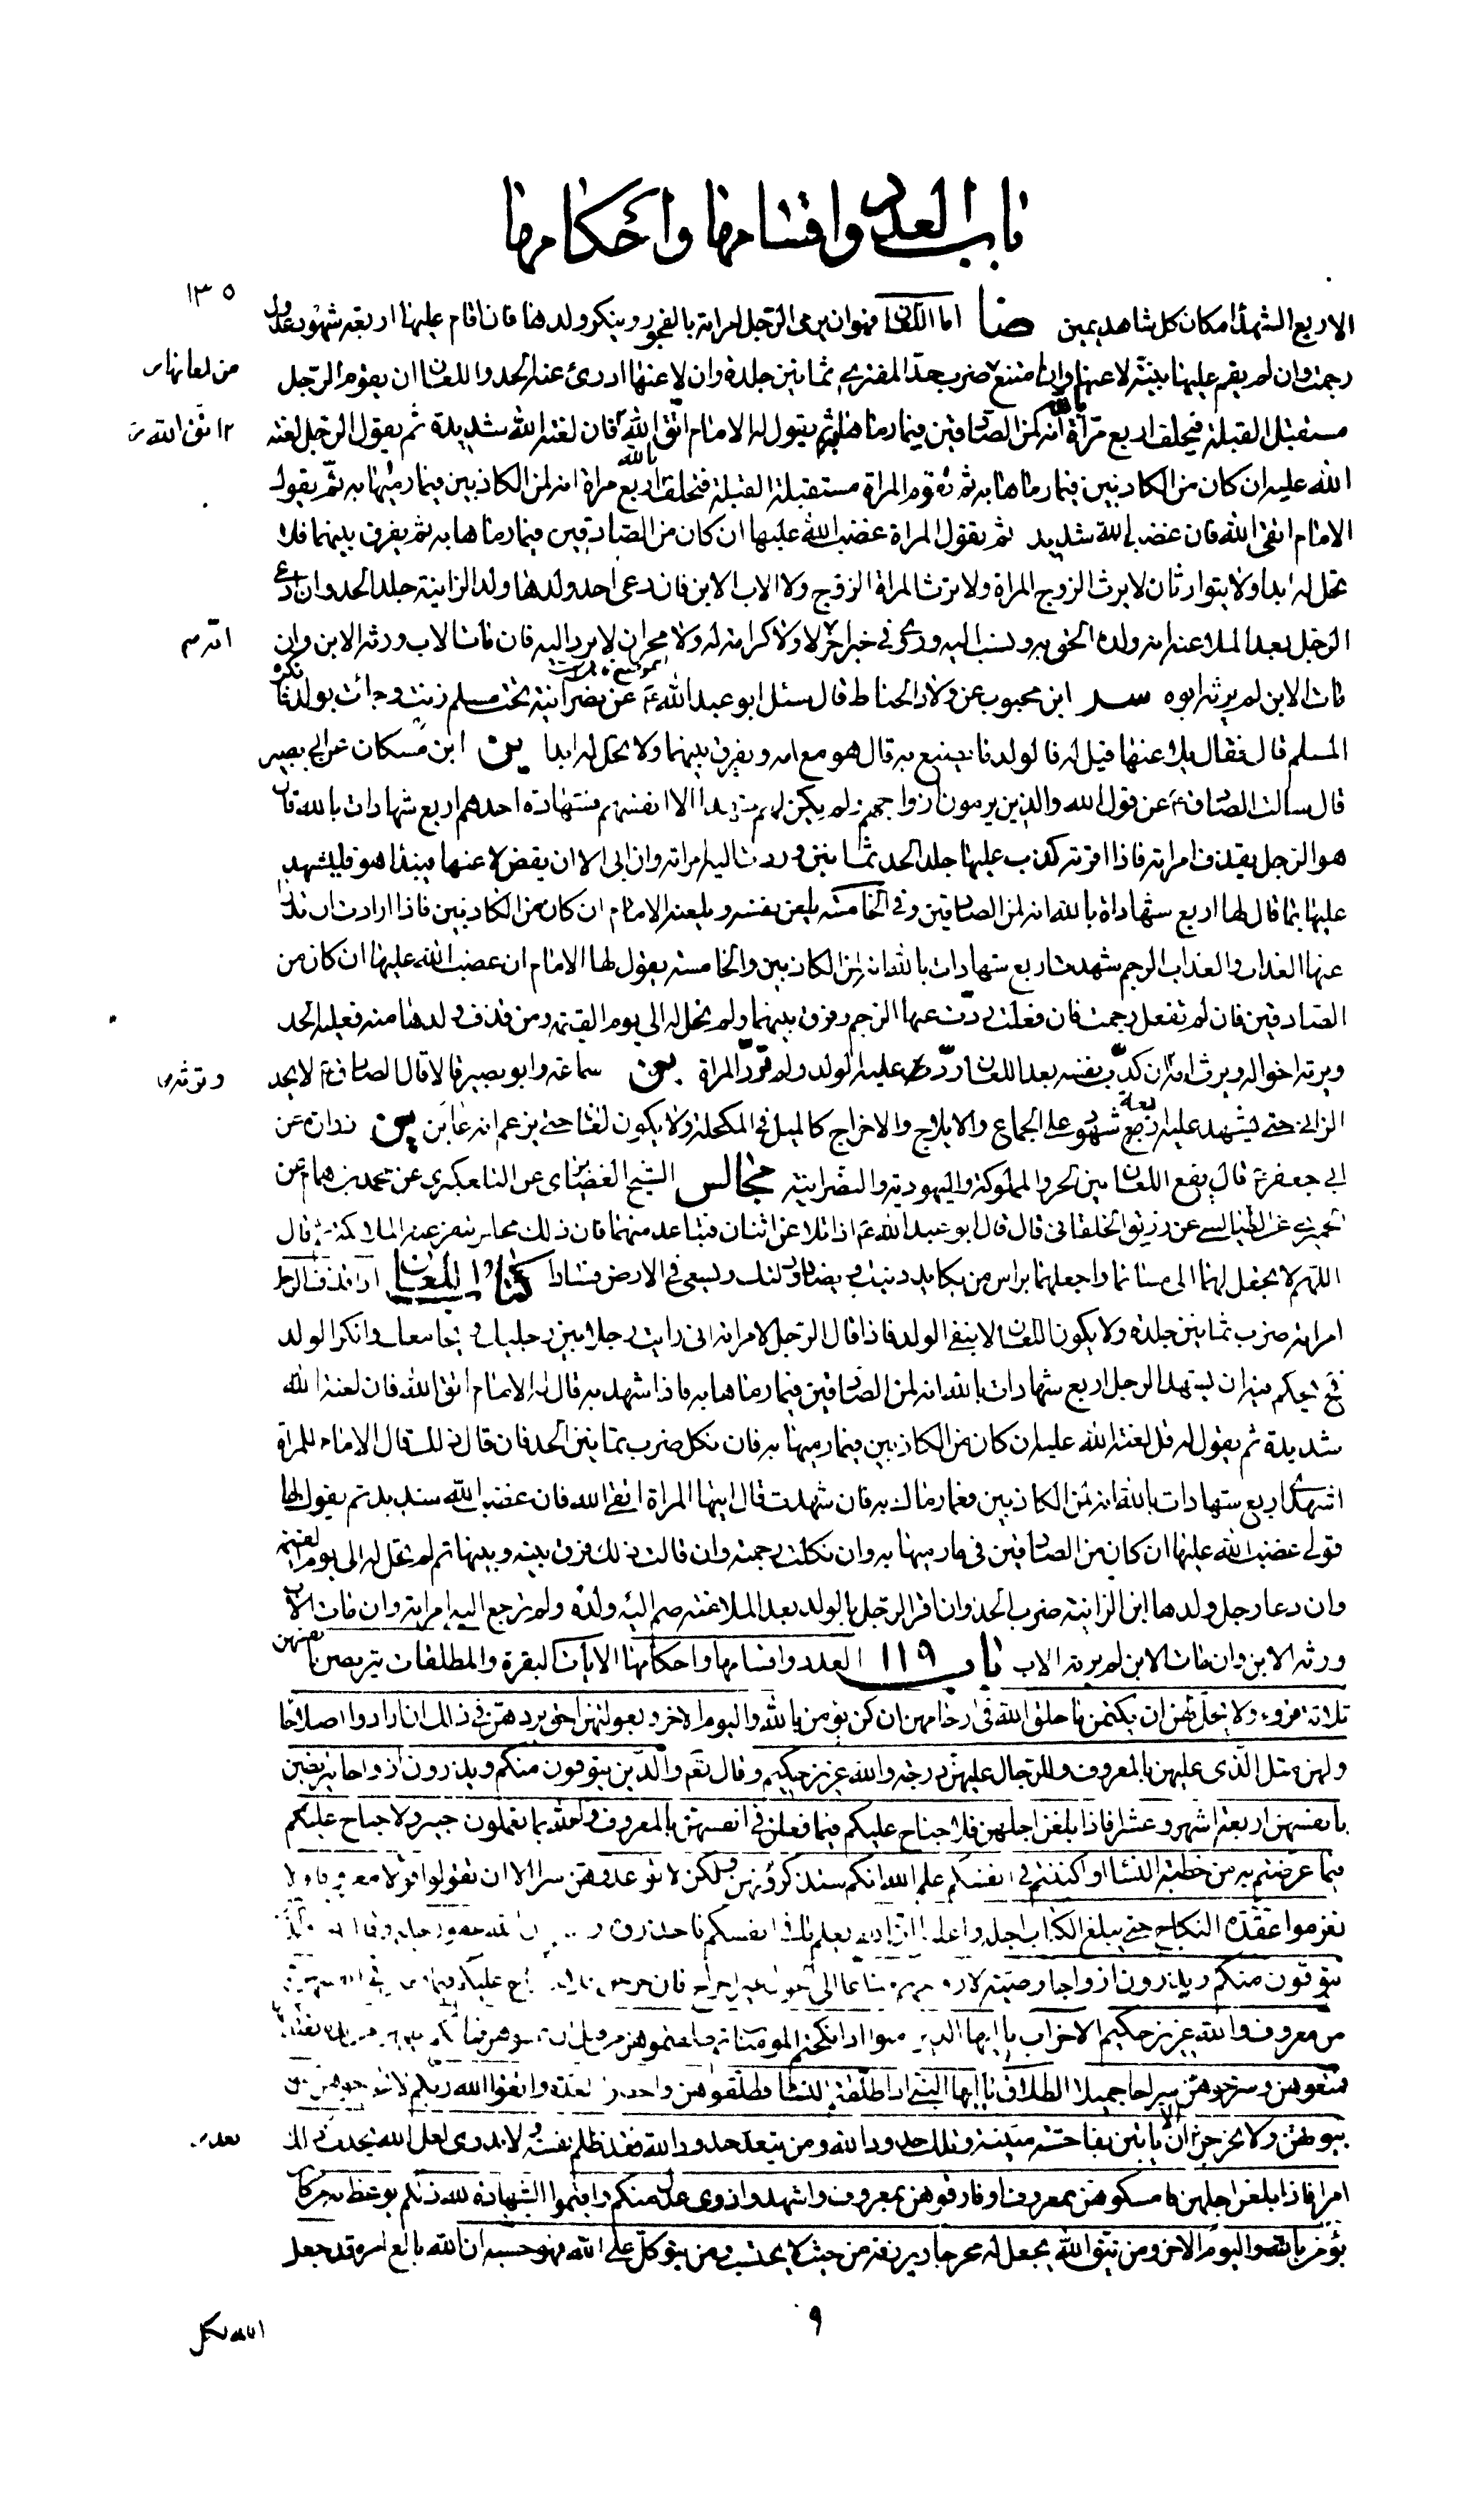 باب العدد واقسامها واحكامها
١٣٥
الاربع الشهداء مكان كل شاهد يمين ضا اما اللعان فهو ان يرمى الرجل امراته بالفجور وينكر ولدها فان اقام عليها اربعة شهود عدول
رجمت وان لم يقم عليها بينة لاعنها وان امتنع من لعانها ضرب حد المفترى ثمانين جلدة وان لاعنها ادرئ عنه الحد واللعان ان يقوم الرجل
مستقبل القبلة فيحلف اربع مرات بالله انه لمن الصادقين فيما رماها به ثم يقول له الامام اتق الله فان لعنة الله شديدة ثم يقول الرجل لعنة
الله عليه ان كان من الكاذبين فيما رماها به ثم تقوم المراة مستقبلة القبلة فتحلف اربع مرات بالله انه لمن الكاذبين فيما رميها به ثم يقول
الامام اتقى الله فان غضب الله شديد ثم يقول المراة غضب الله عليها ان كان من الصادقين فيما رماها به ثم يفرق بينهما فلا
تحل له ابدا ولا يتوارثان لا يرث الزوج المراة ولا ترث المراة الزوج ولا الاب الابن فان دعى احد ولدها ولد الزانية جلد الحد وان ادعى
الرجل بعد الملاعنة انه ولده الحق به ونسب اليه وروى فى خبر اخر لا ولا كرامة له ولا يرد اليه فان مات الاب ورثه الابن وان
مات الابن لم يرثه ابوه ابن محبوب عن ولاد الحناط قال سئل ابو عبد الله ع عن نصرانية تحت مسلم زنت وجائت بولد فانكره
المسلم قال فقال يلاعنها قيل له فالولد ما يصنع به قال هو مع امه ويفرق بينهما ولا تحل له ابدا ين ابن مسكان عن ابى بصير
قال سالت الصادق ع عن قول الله والذين يرمون ازواجهم ولم يكن لهم شهداء الا انفسهم فشهادة احدهم اربع شهادات بالله قال
هو الرجل يقذف امراته فاذا اقر انه كذب عليها جلد الحد ثمانين وردت اليه امراته وان ابى الا ان يمض لاعنها فيبدا هو فليشهد
عليها بما قال لها اربع شهادات بالله انه لمن الصادقين وفى الخامسة يلعن نفسه ويلعنه الامام ان كان من الكاذبين فاذا ارادت ان تدرا
عنها العذاب والعذاب الرجم شهدت اربع شهادات بالله انه لمن الكاذبين والخامسة يقول لها الامام ان غضب الله عليها ان كان من
الصادقين فان لم تفعل رجمت فان فعلت ردت عنها الرجم وفرق بينهما ولم تحل له الى يوم القيمة ومن قذف ولدها منه فعليه الحد
ويرثه اخواله ويرث امه ان كذب نفسه بعد اللعان رد عليه الولد ولم ترد المراة ين سماعة وابو بصير قالا قال الصادق ع لا يحد
الزانى حتى يشهد عليه اربعة شهود على الجماع والايلاج والاخراج كالميل فى المكحلة ولا يكون لعان حتى يزعم انه عاين ين زرارة عن
ابى جعفر ع قال يقع اللعان بين الحر والمملوكة واليهودية والنصرانية مجالس الشيخ الغضايرى عن التلعكبرى عن محمد بن همام عن
الحميرى عن الطيالسى عن رزيق الخلقانى قال قال ابو عبد الله ع اذا تلاعن اثنان فتباعد منهما فان ذلك مجلس تنفر عنه الملائكة ثم قال
اللهم لا تجعل لهما الى مساغا واجعلهما براس من يكايد دينك ويضاد وليك ويسعى فى الارض فسادا كتاب اللعان اذا قذف الرجل
امراته ضرب ثمانين جلدة ولا يكون اللعان الا بنفى الولد فاذا قال الرجل لامراته انى رايت رجلا بين رجليك يجامعك وانكر الولد
فح يحكم فيه ان يشهد الرجل اربع شهادات بالله انه لمن الصادقين فيما رماها به فاذا شهد به قال له الامام اتق الله فان لعنة الله
شديدة ثم يقول له قل لعنة الله عليه ان كان من الكاذبين فيما رميها به فان نكل ضرب ثمانين الحد فان قال ذلك قال الامام للمراة
اشهدى اربع شهادات بالله انه لمن الكاذبين فيما رماك به فان شهدت قال ايتها المراة اتقى الله فان غضب الله شديد ثم يقول لها
قولى غضب الله عليها ان كان من الصادقين فى ما رميها به وان نكلت رجمت وان قالت ذلك فرق بينه وبينها ثم لم تحل له الى يوم القيمة
وان دعا رجل ولدها ابن الزانية ضرب الحد وان اقر الرجل بالولد بعد الملاعنة ضم اليه ولده ولم ترجع اليه امراته وان مات الاب
ورثه الابن وان مات الابن لم يرثه الاب باب ١١٩ العدد واقسامها واحكامها الايات البقرة والمطلقات يتربصن بانفسهن
ثلاثة قروء ولا يحل لهن ان يكتمن ما خلق الله فى ارحامهن ان كن يؤمن بالله واليوم الاخر وبعولتهن احق بردهن فى ذلك ان ارادوا اصلاحا
ولهن مثل الذى عليهن بالمعروف وللرجال عليهن درجة والله عزيز حكيم وقال تعم والذين يتوفون منكم ويذرون ازواجا يتربصن
بانفسهن اربعة اشهر وعشرا فاذا بلغن اجلهن فلا جناح عليكم فيما فعلن فى انفسهن بالمعروف والله بما تعملون خبير ولا جناح عليكم
فيما عرضتم به من خطبة النساء او اكننتم فى انفسكم علم الله انكم ستذكرونهن ولكن لا تواعدوهن سرا الا ان تقولوا قولا معروفا ولا
تعزموا عقدة النكاح حتى يبلغ الكتاب اجله واعلموا ان الله يعلم ما فى انفسكم فاحذروه
يتوفون منكم ويذرون ازواجا وصية متاعا الى الحول غير اخراج فان
من معروف والله عزيز حكيم الاحزاب يا ايها الذين امنوا اذا نكحتم المؤمنات ثم طلقتموهن
فمتعوهن وسرحوهن سراحا جميلا الطلاق يا ايها النبى اذا طلقتم النساء فطلقوهن واحصوا العدة واتقوا الله ربكم لا تخرجوهن من
بيوتهن ولا يخرجن الا ان ياتين بفاحشة مبينة وتلك حدود الله ومن يتعد حدود الله فقد ظلم نفسه لا تدرى لعل الله يحدث بعد ذلك
امرا فاذا بلغن اجلهن فامسكوهن بمعروف او فارقوهن بمعروف واشهدوا ذوى عدل منكم واقيموا الشهادة لله ذلكم يوعظ به من كان
يؤمن بالله واليوم الاخر ومن يتق الله يجعل له مخرجا ويرزقه من حيث لا يحتسب ومن يتوكل على الله فهو حسبه ان الله بالغ امره قد جعل
٩
الله لكل